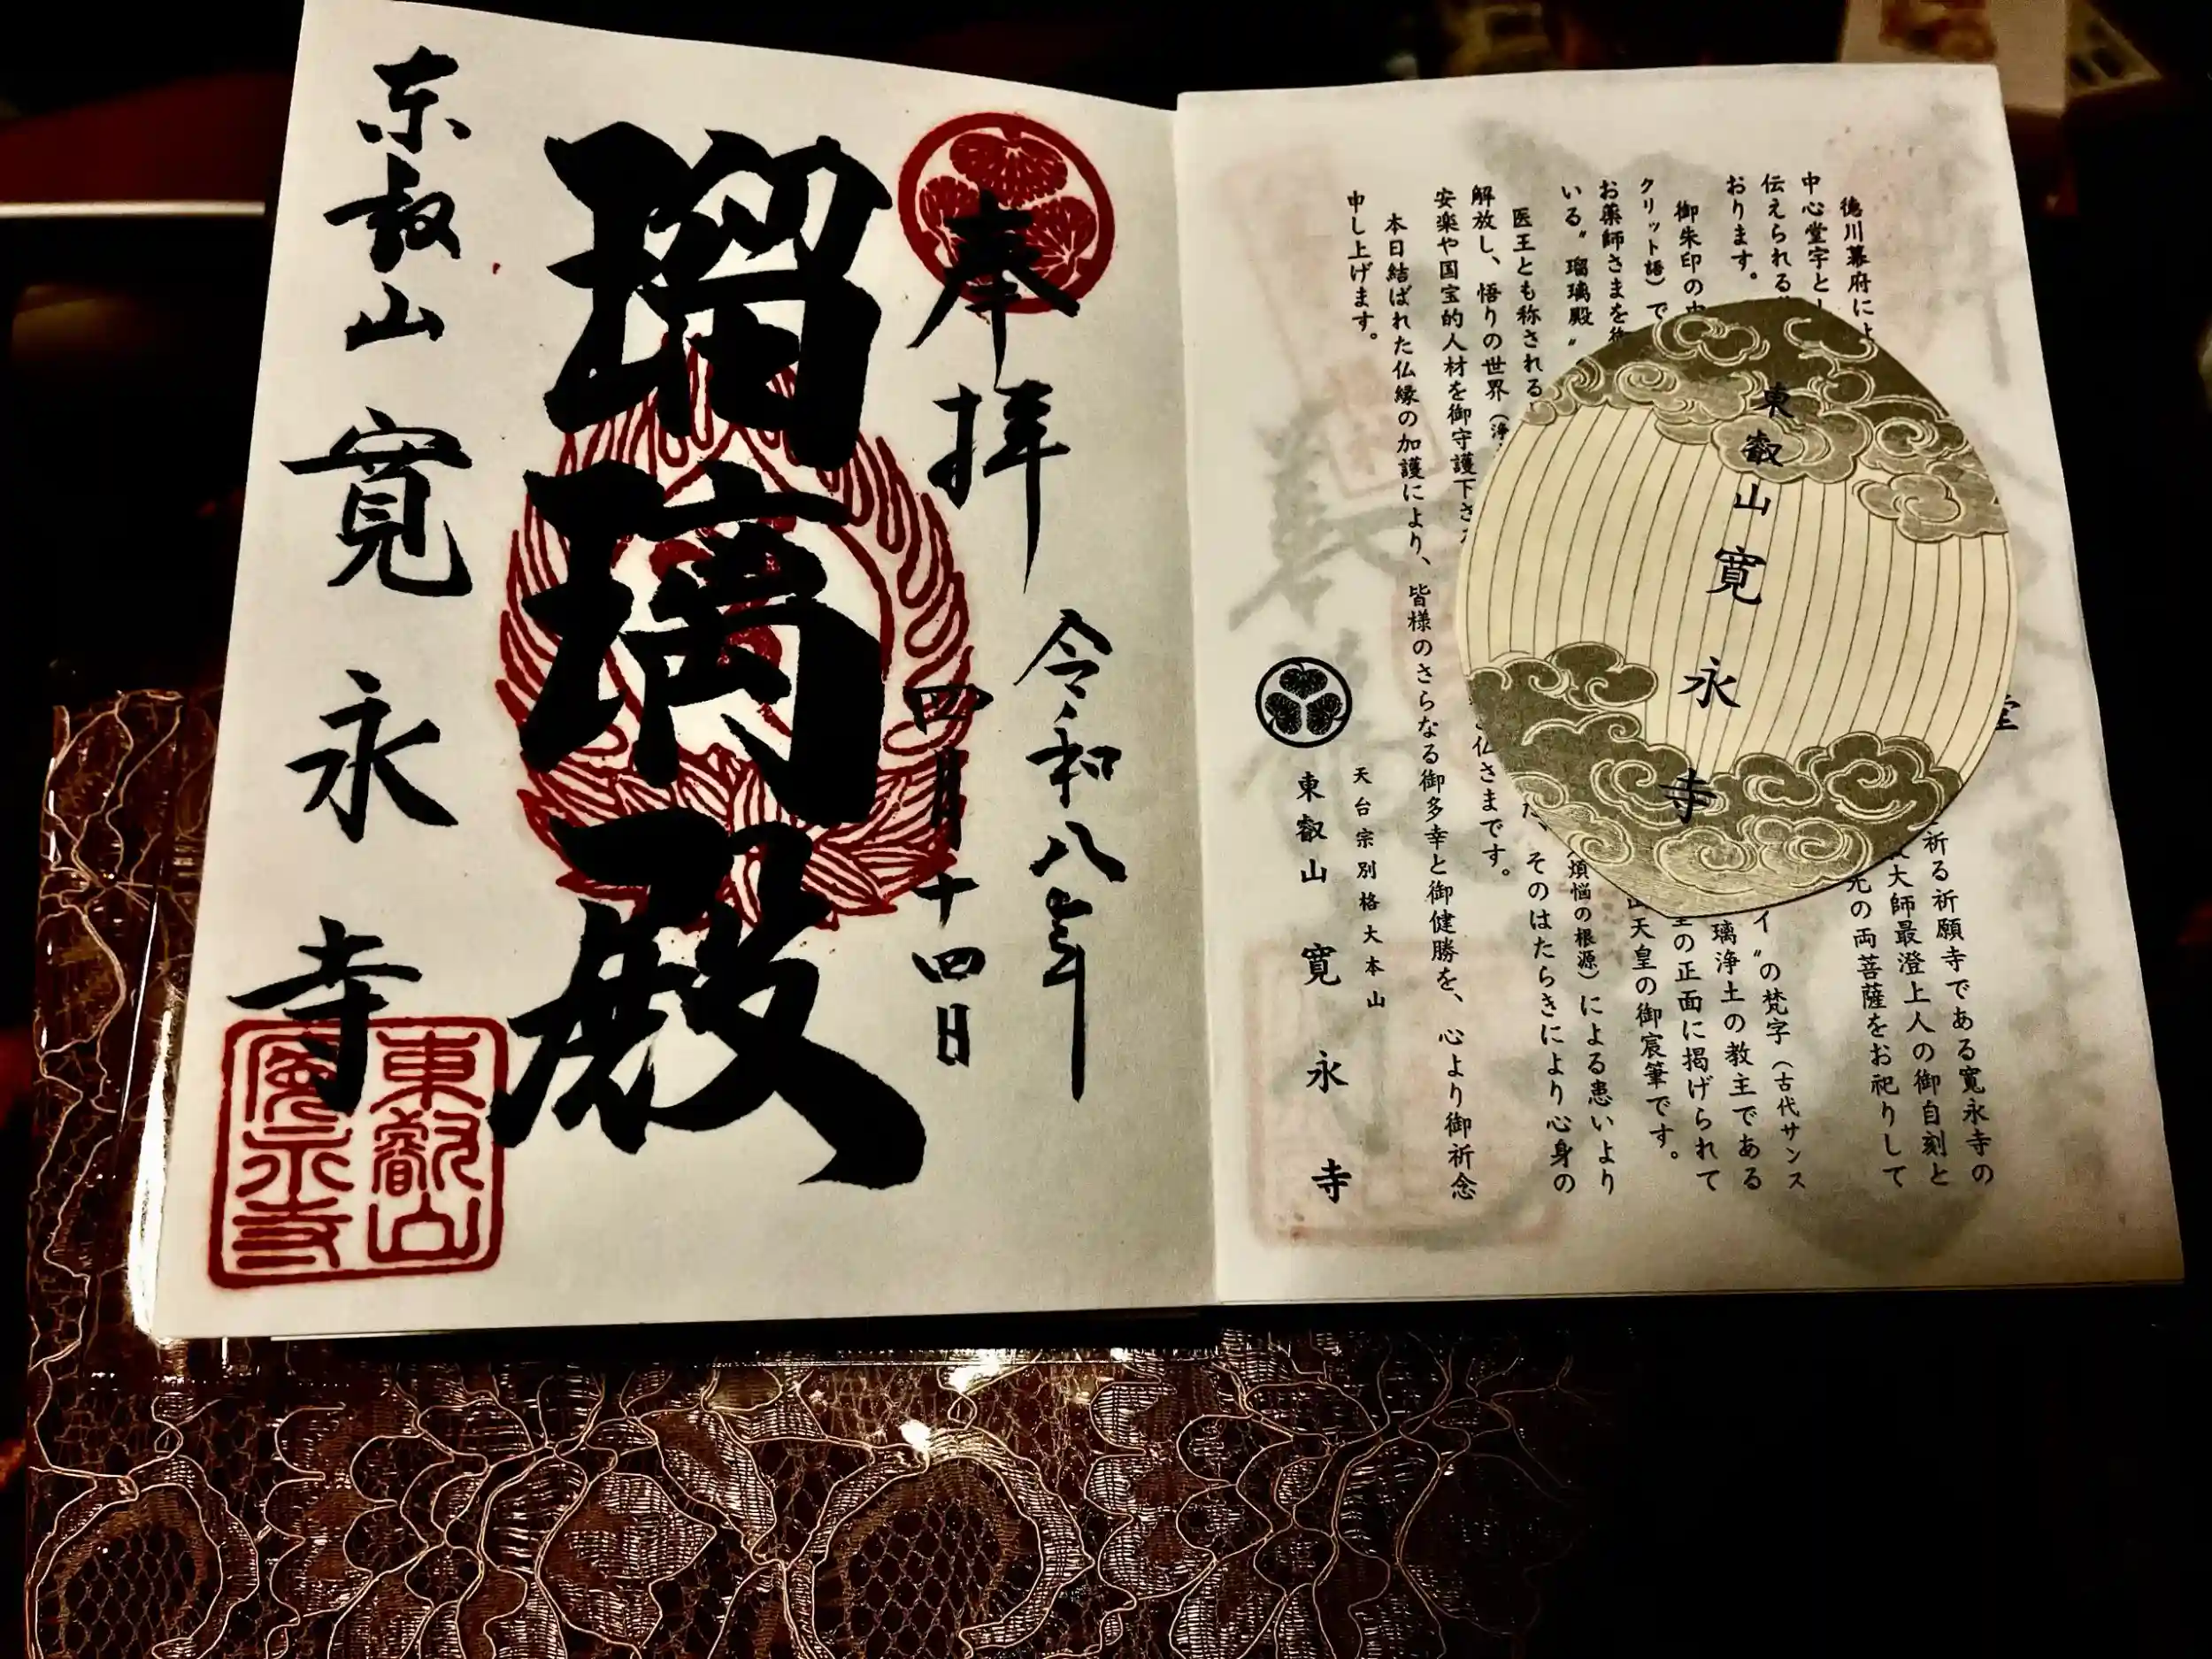 奉拝
令和八年
四月十四日
瑠璃殿
东叡山 寛永寺
東叡山
寛永寺
徳川幕府によ
祈る祈願寺である寛永寺の
中心堂宇とし
大師最澄上人の御自刻と
伝えられる
光の両菩薩をお祀りして
おります。
御朱印の中
イ〟の梵字（古代サンス
クリット語）で
璃浄土の教主である
お薬師さまを御
の正面に掲げられて
いる〝瑠璃殿〟
天皇の御宸筆です。
医王とも称される
煩悩の根源）による患いより
解放し、悟りの世界（浄
、そのはたらきにより心身の
安楽や国宝的人材を御守護下さる
仏さまです。
本日結ばれた仏縁の加護により、皆様のさらなる御多幸と御健勝を、心より御祈念
申し上げます。
天台宗別格大本山
東叡山 寛永寺
東叡山寛永寺
堂